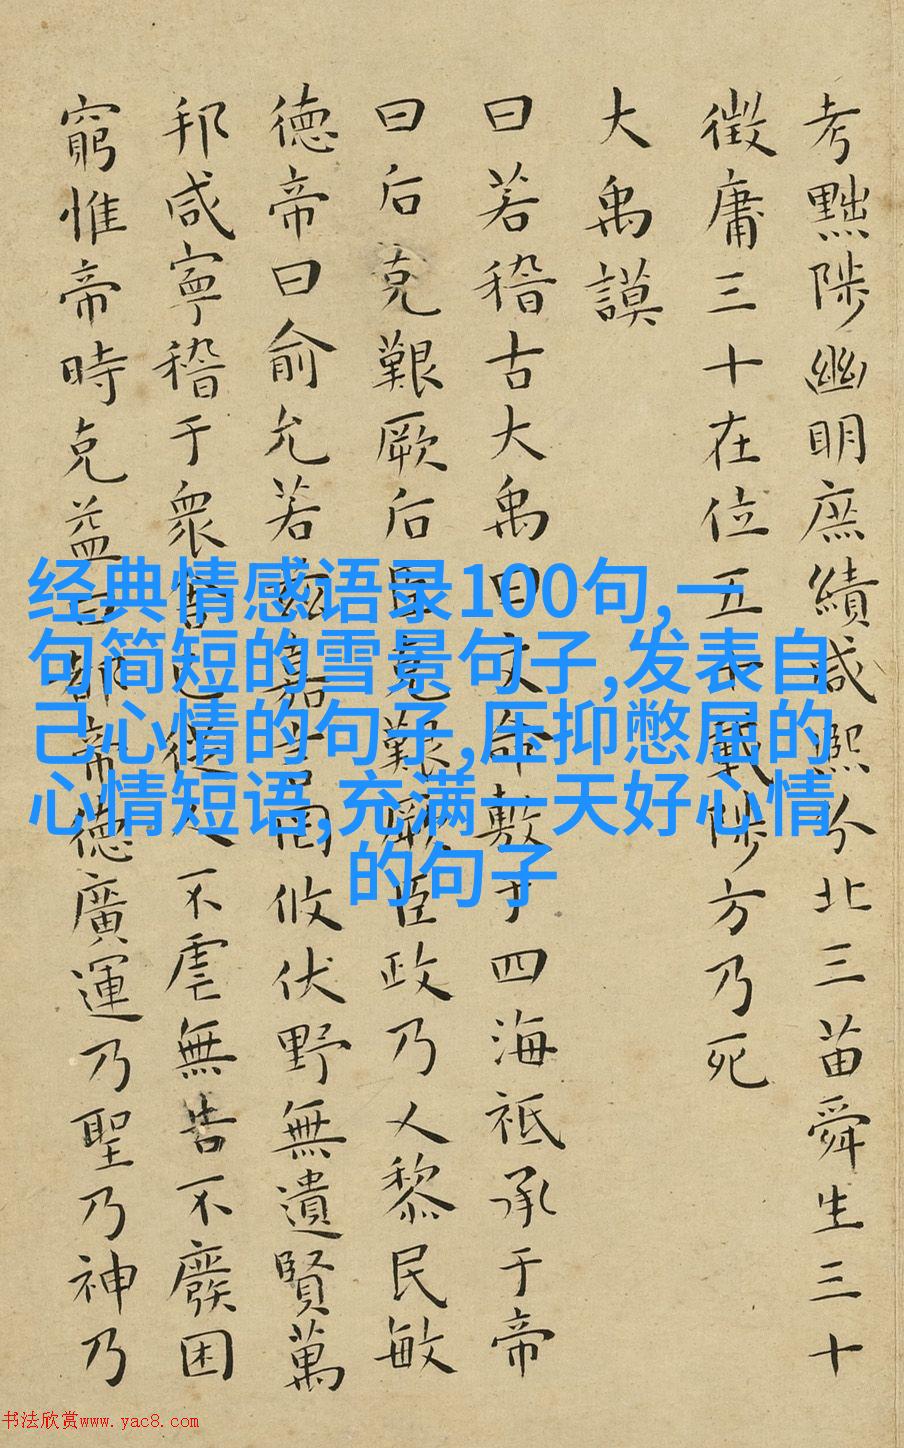 考黜陟幽明庶績咸熙分北三苗舜生三十
徵庸三十在位五十載陟方乃死
大禹謨
曰若稽古大禹曰文命敷于四海祗承于帝
曰后克艱厥后臣克艱厥臣政乃乂黎民敏
德帝曰俞允若茲嘉言罔攸伏野無遺賢萬
邦咸寧稽于衆舍己從人不虐無告不廢困
窮惟帝時克益曰都帝德廣運乃聖乃神乃
经典情感语录100句,一
句简短的雪景句子,发表自
己心情的句子,压抑憋屈的
心情短语,充满一天好心情
的句子
书法欣赏www.yac8.com